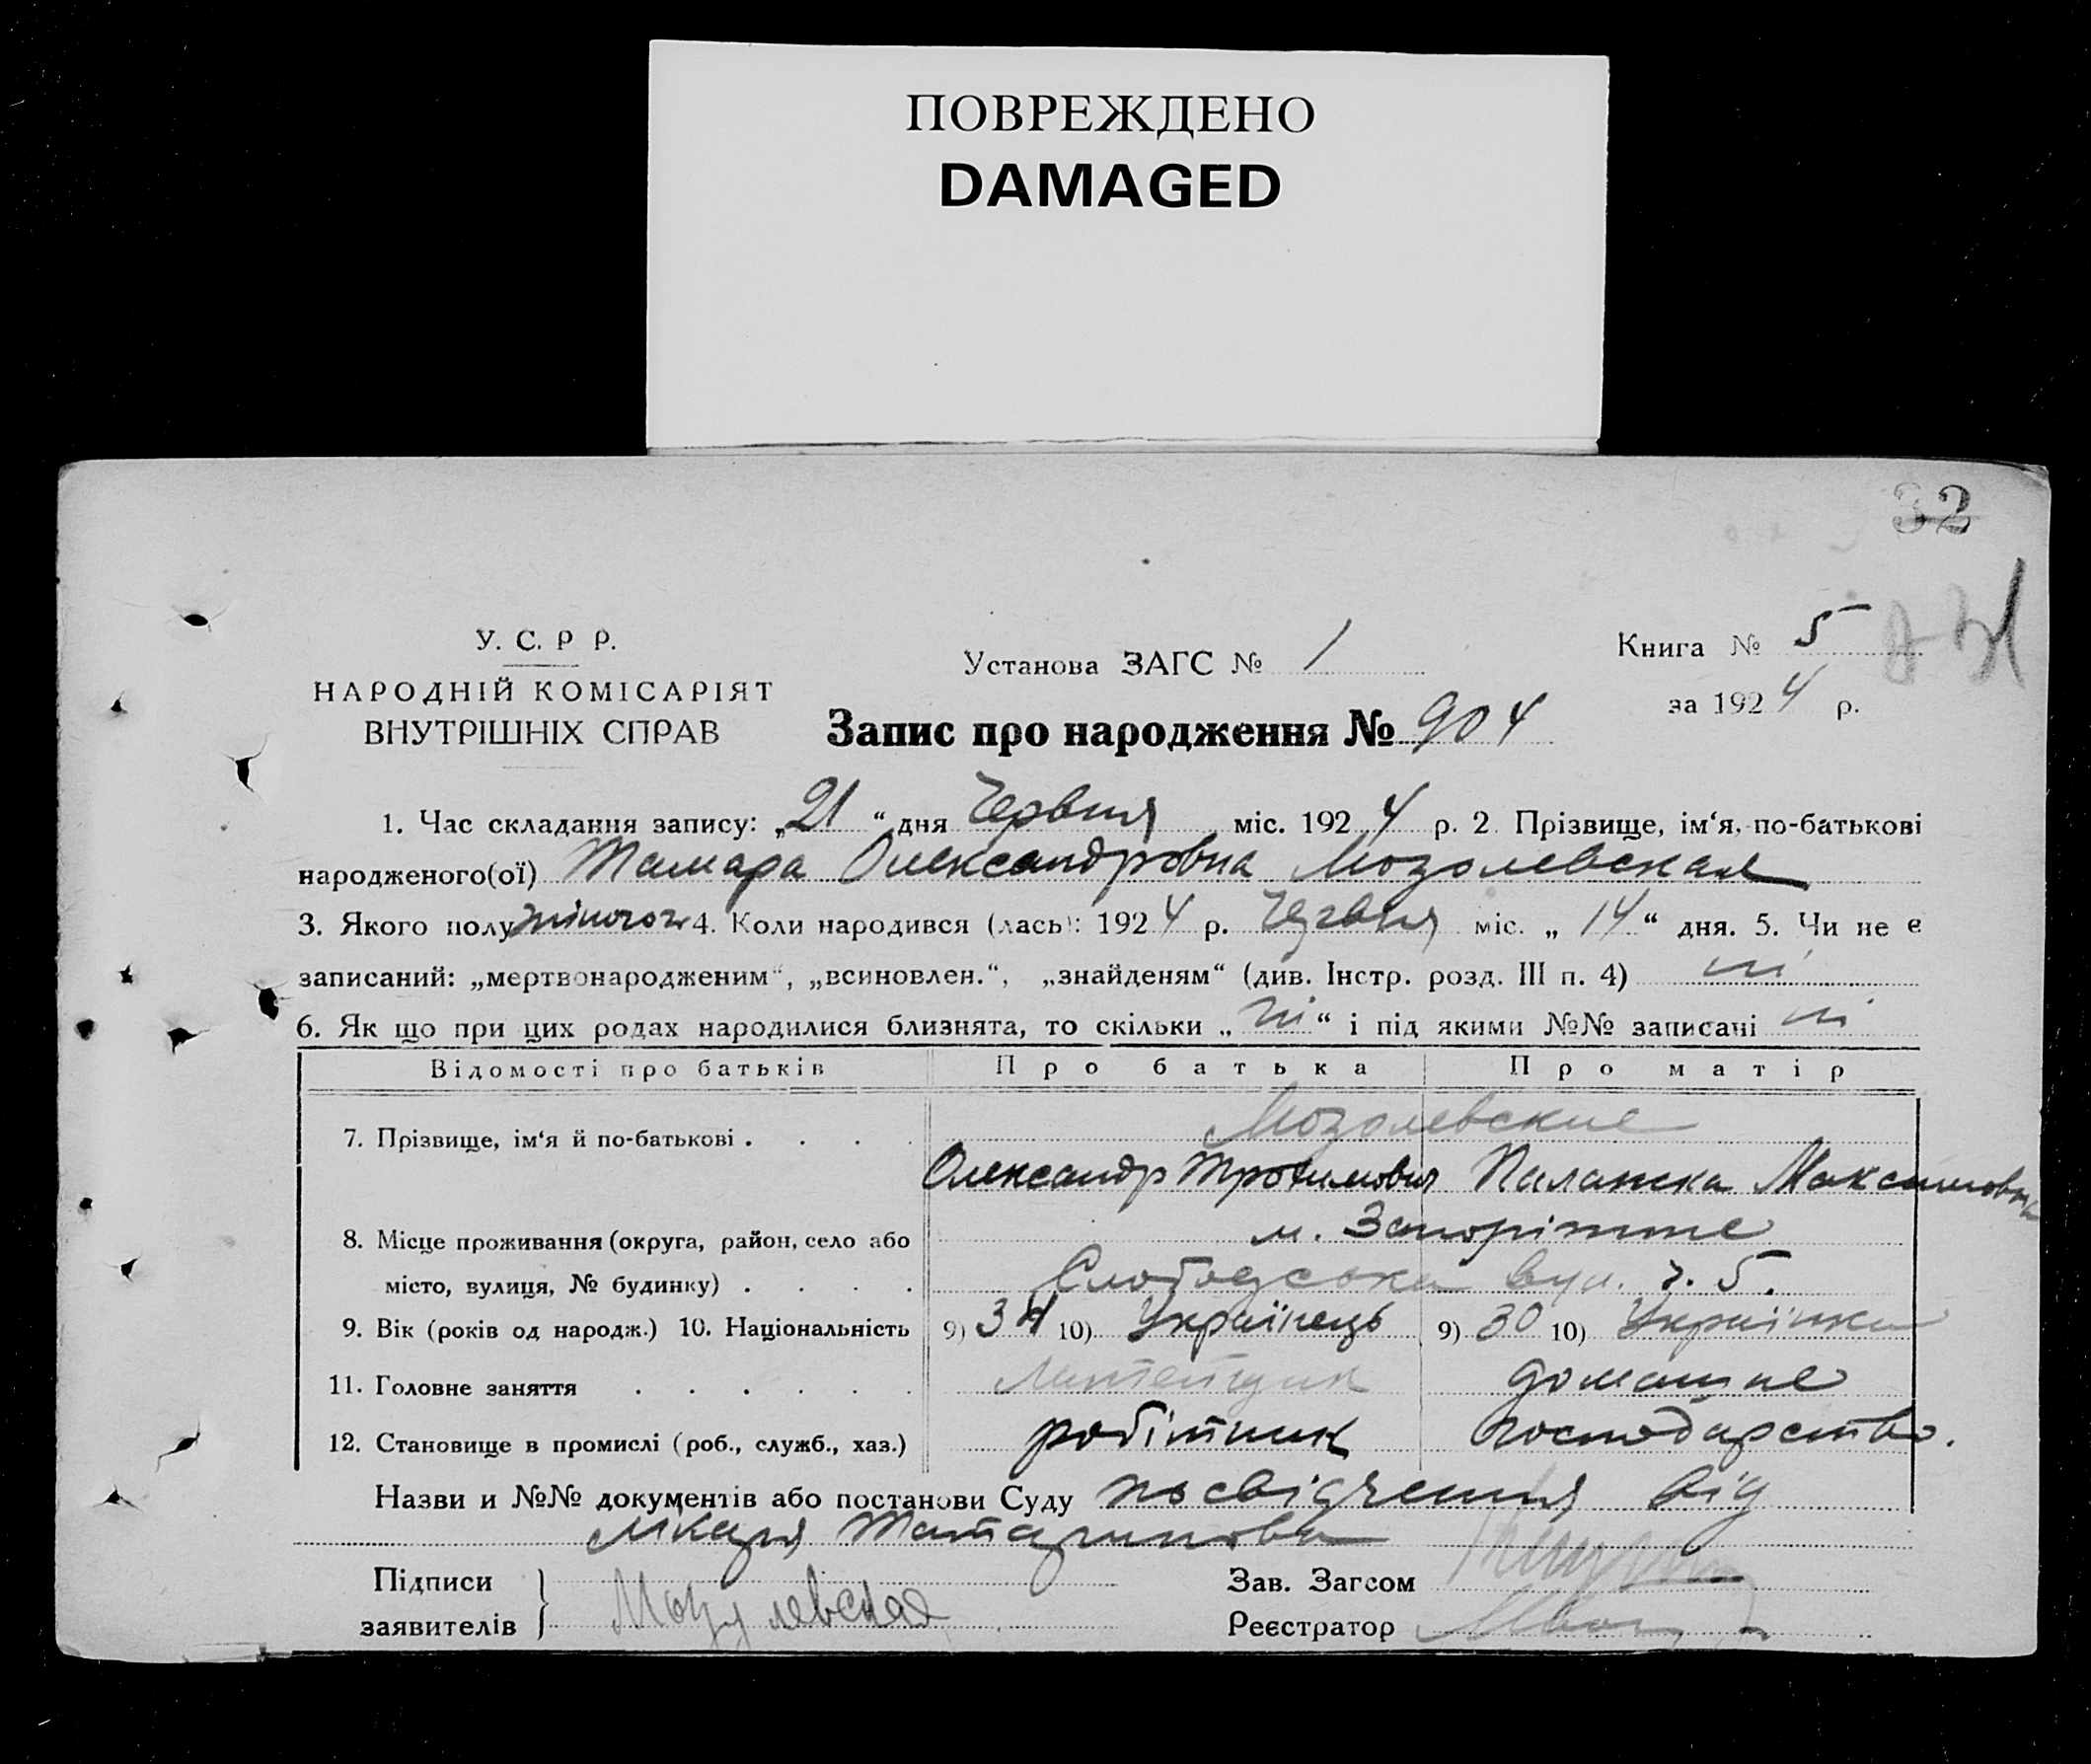 ПОВРЕЖДЕНО
DAMAGED
32
У. С. Р Р.
НАРОДНІЙ КОМІСАРІЯТ
ВНУТРІШНІХ СПРАВ
Установа ЗАГС № 1
Книга № 5
за 1924 р.
Запис про народження № 904
1. Час складання запису: „21“ дня Червня міс. 1924 р. 2. Прізвище, ім‘я, по-батькові
народженого(ої) Тамара Олександровна Мозолевская
3. Якого полу жіночого 4. Коли народився (лась): 1924 р. Червня міс. „14“ дня. 5. Чи не є
записаний: „мертвонародженим“, „всиновлен.“, „знайденям“ (див. Інстр. розд. III п. 4) ні
6. Як що при цих родах народилися близнята, то скільки „ні“ і під якими №№ записані ні
Відомості про батьків Про батька Про матір
Мозолевские
7. Прізвище, ім‘я й по-батькові . . . .
Олександр Трохимович Палажка Максимовна
8. Місце проживання (округа, район, село або м. Запоріжже
місто, вулиця, № будинку) . . . . Слободська вул. ч. 5.
9. Вік (років од народж.) 10. Національність 9) 34 10) Українець 9) 30 10) Українка
11. Головне заняття . . . . . . домашнє
12. Становище в промислі (роб., служб., хаз.) робітник господарство.
Назви и №№ документів або постанови Суду посвідчення від
лікаря Татаринова
Підписи
заявителів Мозулевская
Зав. Загсом
Реєстратор